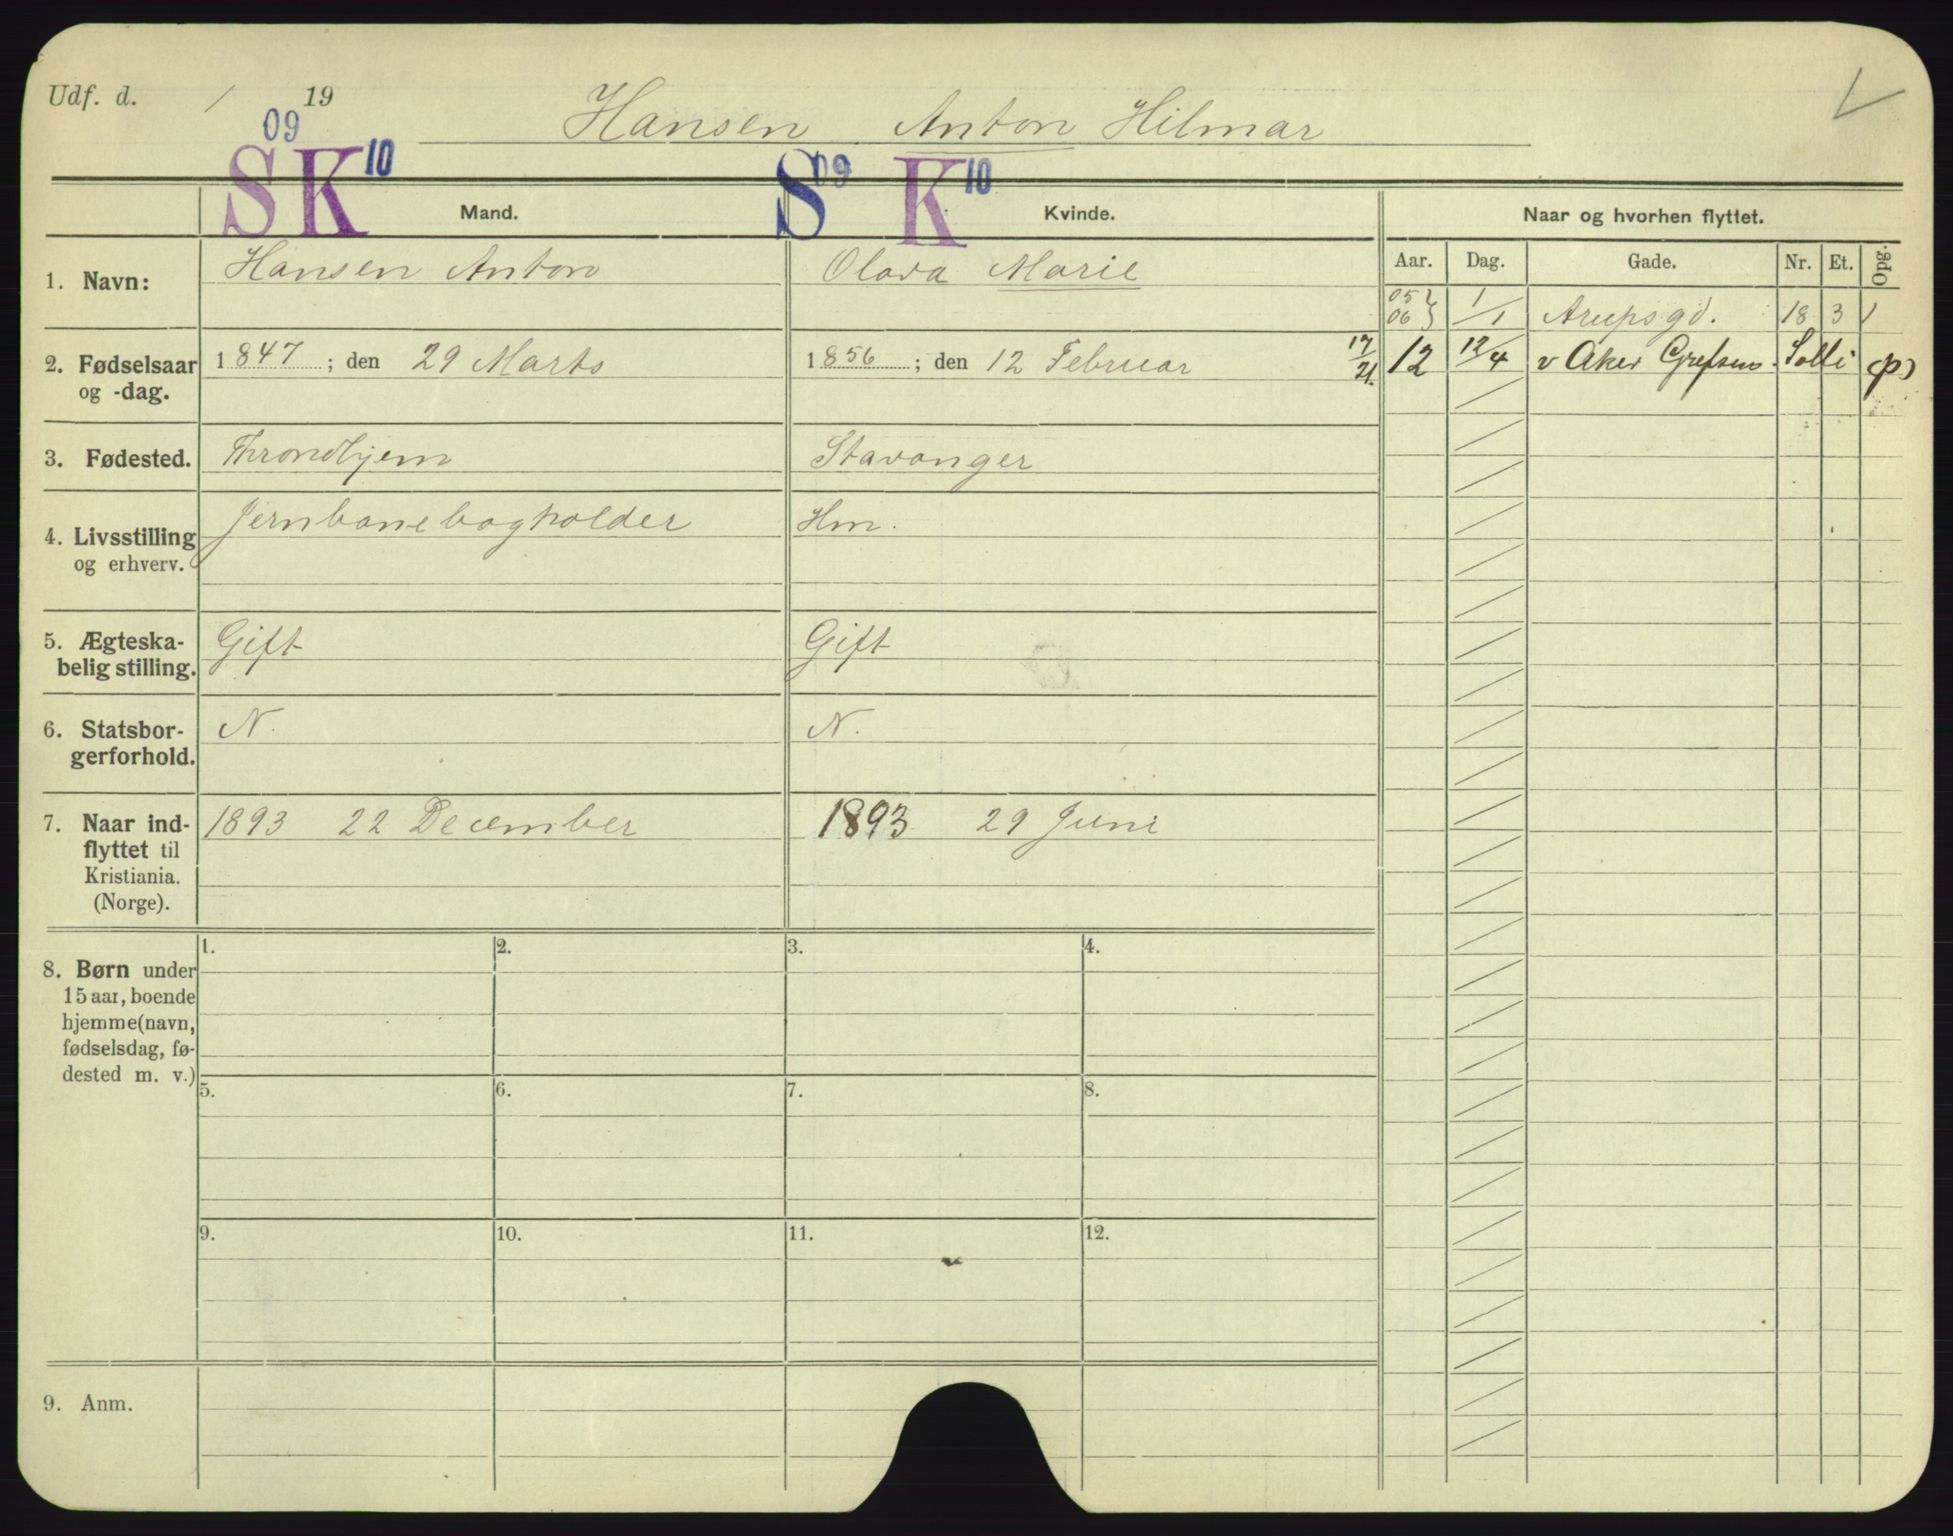 Udf. d. / 19
Hansen Anton Hilmar
09
S K 10
S 09 K 10
Mand.
Kvinde.
Naar og hvorhen flyttet.
Aar. Dag. Gade. Nr. Et. Opg.
1. Navn:
Hansen Anton
Olava Marie
05 } 1/1 Arupsgd. 18 3 1
06
2. Fødselsaar
og -dag.
1847 ; den 29 Marts
1856 ; den 12 Februar
12 12/4 v Aker Grefsen Solli (p)
3. Fødested.
Throndhjem
Stavanger
4. Livsstilling
og erhverv.
Jernbanebogholder
Hm.
5. Ægteska-
belig stilling.
Gift
Gift
6. Statsbor-
gerforhold.
N.
N.
7. Naar ind-
flyttet til
Kristiania.
(Norge).
1893 22 December
1893 29 Juni
8. Børn under
15 aar, boende
hjemme (navn,
fødselsdag, fø-
dested m. v.)
1. 2. 3. 4.
5. 6. 7. 8.
9. 10. 11. 12.
9. Anm.